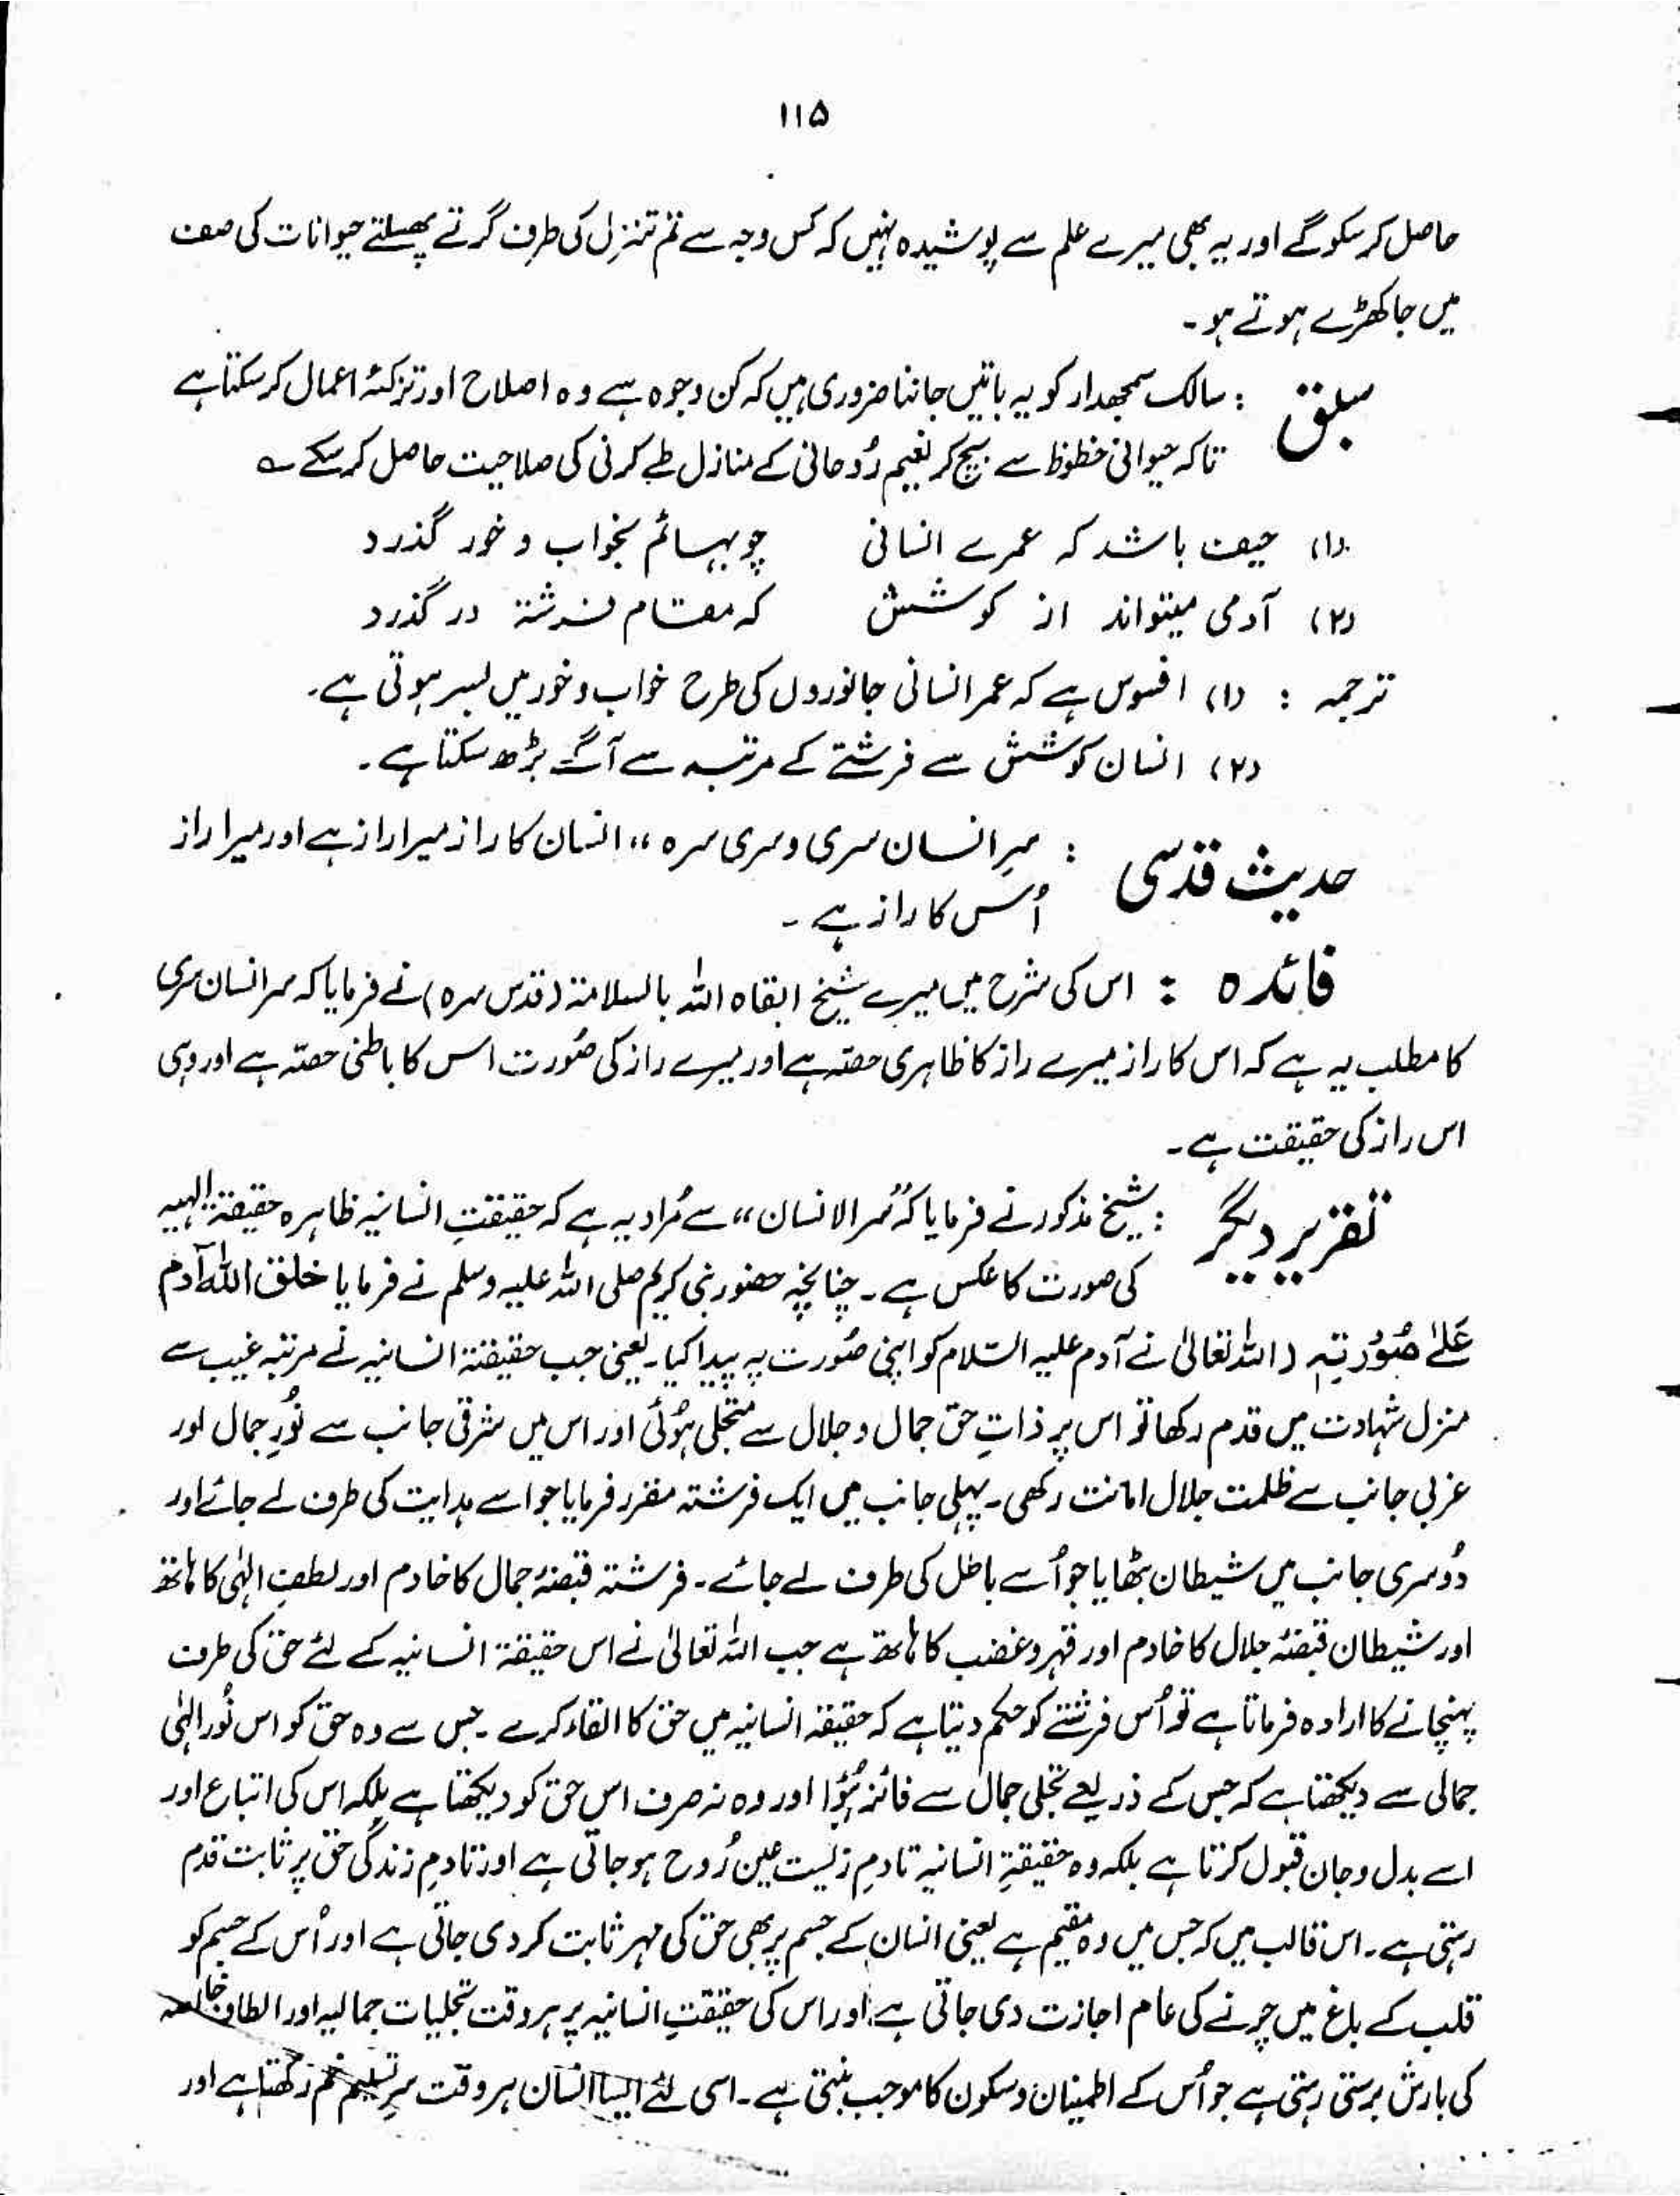 ۱۱۵
حاصل کر سکو گے اور یہ بھی میرے علم سے پوشیدہ نہیں کہ کس وجہ سے تم تنزل کی طرف گرتے پھسلتے حیوانات کی صف
میں جا کھڑے ہوتے ہو۔
سبق : سالک سمجھدار کو یہ باتیں جاننا ضروری ہیں کہ کن وجوہ سے وہ اصلاح اور تزکئہ اعمال کر سکتا ہے
تاکہ حیوانی خطوط سے بچ کر نعیم رُوحانی کے منازل طے کرنی کی صلاحیت حاصل کر سکے ے
(۱) حیف باشد کہ عمرے انسانی چو بہائم بخواب و خور گذرد
(۲) آدمی میتواند از کوشش کہ مقام فرشتہ در گذرد
ترجمہ : (۱) افسوس ہے کہ عمر انسانی جانوروں کی طرح خواب و خور میں بسر ہوتی ہے۔
(۲) انسان کوشش سے فرشتے کے مرتبہ سے آگے بڑھ سکتا ہے۔
حدیث قدسی : سرِ انسان سری و سری سرہ ،، انسان کا راز میرا راز ہے اور میرا راز
اُس کا راز ہے ۔
فائدہ : اس کی شرح میں میرے شیخ ابقاہ اللہ بالسلامۃ (قدس سرہ) نے فرمایا کہ سر انسان سری
کا مطلب یہ ہے کہ اس کا راز میرے راز کا ظاہری حصّہ ہے اور میرے راز کی صُورت اس کا باطنی حصّہ ہے اور وہی
اس راز کی حقیقت ہے۔
تقریر دیگر : شیخ مذکور نے فرمایا کہ ”سر الانسان،، سے مُراد یہ ہے کہ حقیقتِ انسانیہ ظاہرہ حقیقۃ الٰہیہ
کی صورت کا عکس ہے ۔ چنانچہ حضور نبی کریم صلی اللہ علیہ وسلم نے فرمایا خلق اللہ آدم
عَلےٰ صُوْرَتِہٖ (اللہ تعالیٰ نے آدم علیہ السّلام کو اپنی صُورت پہ پیدا کیا۔ یعنی جب حقیقۃ انسانیہ نے مرتبہ غیب سے
منزل شہادت میں قدم رکھا تو اس پر ذاتِ حق جمال و جلال سے متجلی ہُوئی اور اس میں شرقی جانب سے نُورِ جمال اور
غربی جانب سے ظلمت جلال امانت رکھی۔ پہلی جانب میں ایک فرشتہ مقرر فرمایا جو اسے ہدایت کی طرف لے جائے اور
دُوسری جانب میں شیطان بٹھایا جو اُسے باطل کی طرف لے جائے۔ فرشتہ قبضئہ جمال کا خادم اور لطفِ الٰہی کا ہاتھ
اور شیطان قبضئہ جلال کا خادم اور قہر و غضب کا ہاتھ ہے جب اللہ تعالیٰ نے اس حقیقۃ انسانیہ کے لئے حق کی طرف
پہنچانے کا ارادہ فرماتا ہے تو اُس فرشتے کو حکم دیتا ہے کہ حقیقۃ انسانیہ میں حق کا القاء کرے ۔ جس سے وہ حق کو اس نُور الٰہی
جمالی سے دیکھتا ہے کہ جس کے ذریعے تجلی جمال سے فائز ہُوا اور وہ نہ صرف اس حق کو دیکھتا ہے بلکہ اس کی اتباع اور
اسے بدل و جان قبول کرتا ہے بلکہ وہ حقیقۃِ انسانیہ تادم زیست عین رُوح ہو جاتی ہے اور تادمِ زندگی حق پر ثابت قدم
رہتی ہے۔ اس قالب میں کہ جس میں وہ مقیم ہے یعنی انسان کے جسم پر بھی حق کی مہر ثابت کر دی جاتی ہے اور اُس کے جسم کو
قلب کے باغ میں چرنے کی عام اجازت دی جاتی ہے اور اس کی حقیقتِ انسانیہ پر ہر وقت تجلیات جمالیہ اور الطاف خالصہ
کی بارش برستی رہتی ہے جو اُس کے اطمینان و سکون کا موجب بنتی ہے۔ اسی لئے ایسا انسان ہر وقت سرِ تسلیم خم رکھتا ہے اور